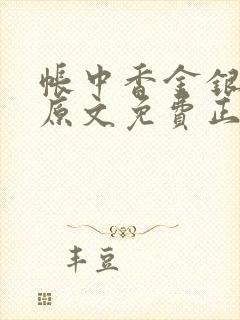 帐中香金银
原文免費正
丰豆